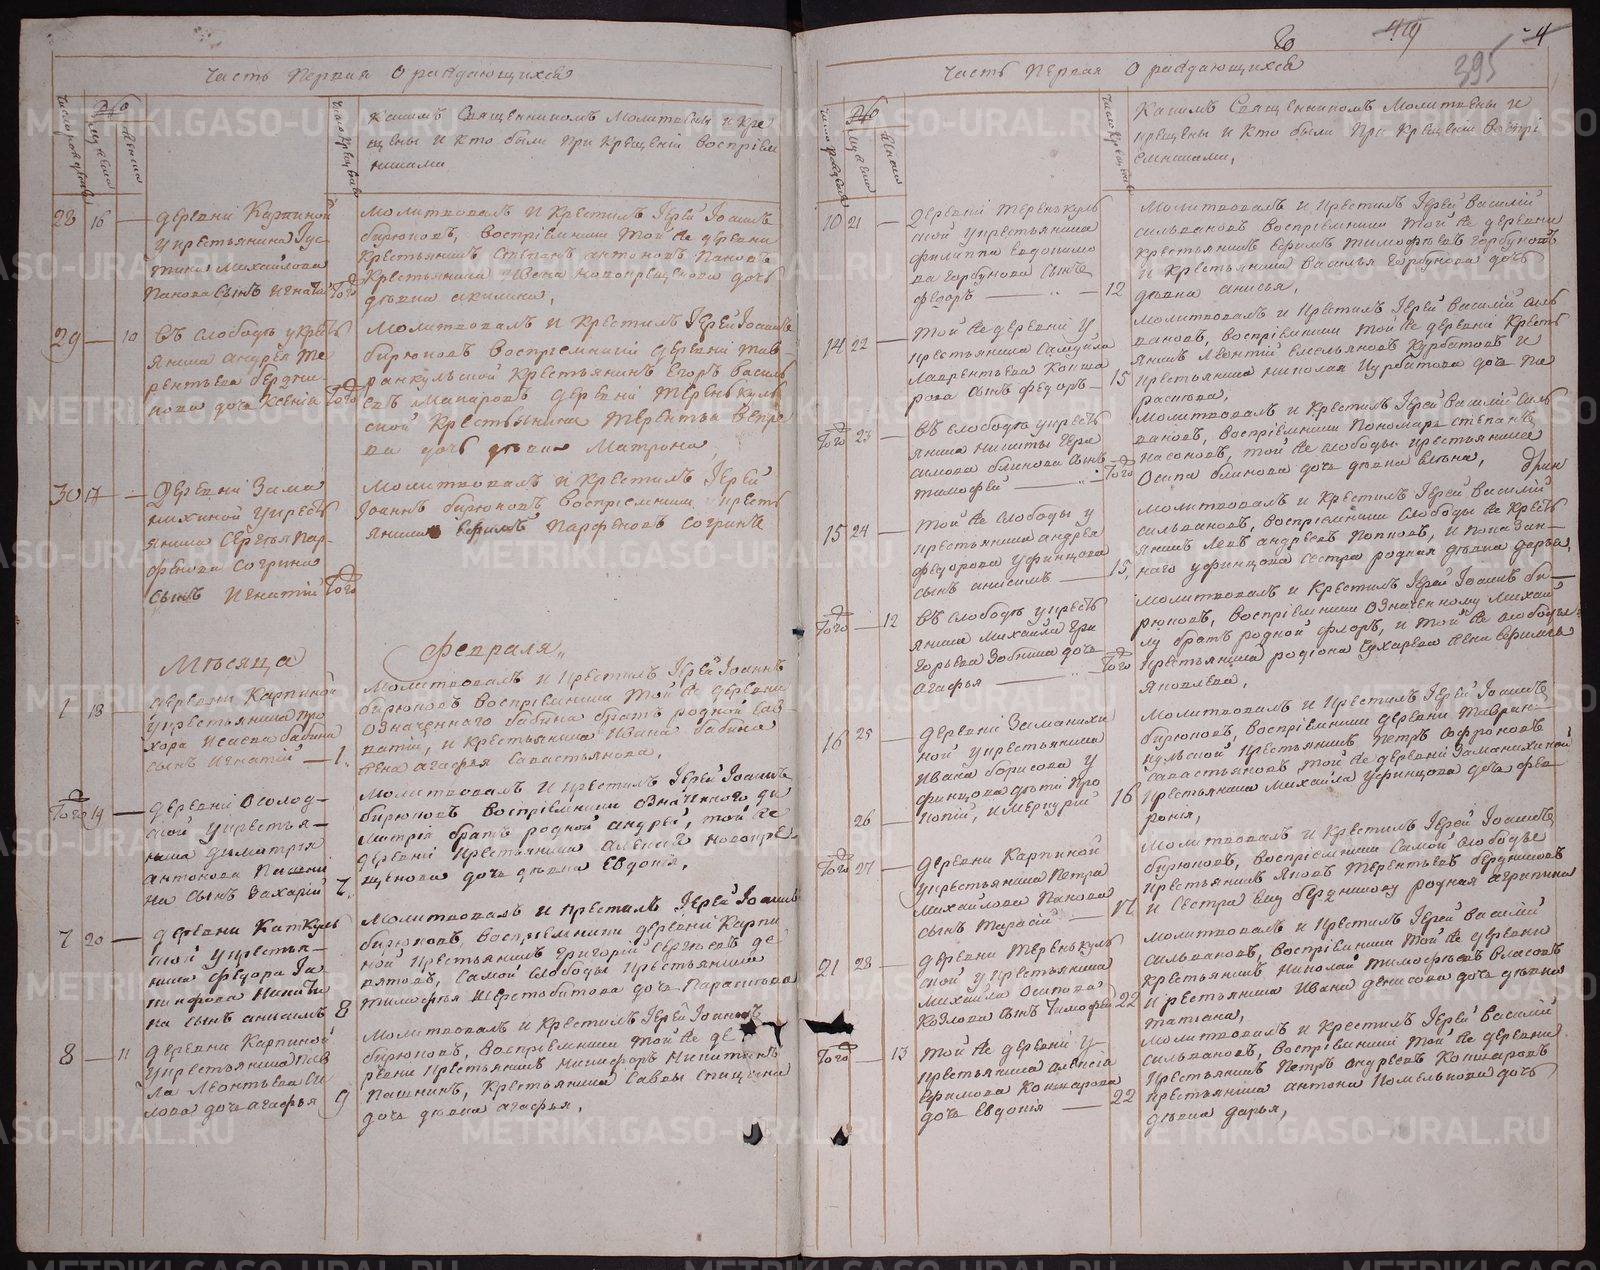 Часть Первая О раждающихся
Какимъ Священникомъ Молитвены и кре
щены и кто были при крещеніи воспріем
никами
28 16 — деревни Карпиной
у крестьянина Іус
тина Михайлова
Панова Сынъ Игнатій Того
Молитвовалъ и Крестилъ Іерей Іоаннъ
бирюковъ, воспріемники той же деревни
крестьянинъ Степанъ антоновъ Пановъ
Крестьянина новокрещенова дочь
девка акилина,
29 — 10 въ слободе у кресть
янина андрея те
рентьева бердни
кова дочь Ксенія Того
Молитвовалъ и Крестилъ Іерей Іоаннъ
бирюковъ воспріемники деревни тав
ранкульской Крестьянинъ Егоръ василь
евъ Макаровъ деревни теренкуль
ской Крестьянина Терентья
ва дочь девка Матрона,
30 17 — Деревни Зама
нихиной у кресть
янина Сергея Пар
фенова Согрина
сынъ Игнатій Того
Молитвовалъ и Крестилъ Іерей
Іоаннъ бирюковъ воспріемники кресть
янинъ Парфеновъ Согринъ
Месяца Февраля
1 18 — деревни Карпиной
у крестьянина Про
хора Исаева бабина
сынъ Игнатій — 1.
Молитвовалъ и Крестилъ Іерей Іоаннъ
бирюковъ воспріемники той же деревни
означеннаго бабина братъ родной Сав
ватій, и Крестьянина Ивана бабина
жена агафья Савастьянова,
Того 19 — деревни Осолод-
ской у крестья-
нина Димитрія
антонова Пашни
на сынъ Захарій 7.
Молитвовалъ и Крестилъ Іерей Іоаннъ
бирюковъ воспріемники означеннаго ди
митрія братъ родной андрей, той же
деревни Крестьянина алексея новокре-
щенова дочь девка Евдокія,
7 20 — деревни Каткуль
ской у крестья-
нина Федора
на сынъ анисимъ 8
Молитвовалъ и крестилъ Іерей Іоаннъ
бирюковъ, воспріемники деревни Карпи
ной Крестьянинъ Григорій Сергеевъ де
вятовъ, Самой Слободы крестьянина
тимофея Шерстобитова дочь Параскова
8 — 11 деревни Карпиной
у крестьянина Пав
ла Леонтьева
лова дочь агафья 9
Молитвовалъ и Крестилъ Іерей Іоаннъ
бирюковъ, воспріемники той же де
ревни крестьянинъ Никифоръ Никитинъ
Пашнинъ, Крестьянина Саввы Спицына
дочь девка агафья,
44 4
395
Часть Первая О раждающихся
Какимъ Священникомъ Молитвены и
крещены и кто были при крещеніи воспрі
емниками,
10 21 — деревни теренкуль
ской у крестьянина
филиппа евдокимо
ва Горбунова Сынъ
флоръ — 12
Молитвовалъ и Крестилъ Іерей василій
сильвановъ воспріемники той же деревни
Крестьянинъ ефимъ тимофеевъ Горбуновъ
и крестьянина василья Горбунова дочь
девка анисья,
14 22 — той же деревни у
крестьянина Самуила
Лаврентьева Конша
рова сынъ федоръ — 15
Молитвовалъ и Крестилъ Іерей василій силь
вановъ, воспріемники той же деревни Кресть
янинъ Леонтій емельяновъ Курбатовъ и
крестьянина николая Курбатова дочь Па
расковья,
Того 23 — въ слободе у кресть
янина никиты Гера
симова блинова сынъ
тимофей — Того
Молитвовалъ и Крестилъ Іерей василій силь
вановъ, воспріемники Пономарь степанъ
насоновъ, той же слободы крестьянина
Осипа блинова дочь девка елена,
15 24 — той же слободы у
крестьянина андрея
федорова Уфинцова
сынъ анисимъ — 15,
Молитвовалъ и Крестилъ Іерей василій
сильвановъ, воспріемники слободы же кресть
янинъ Левъ андреевъ Поповъ, и показан-
наго уфинцова сестра родная девка дарья,
Того — 12 въ слободе у кресть
янина Михайла Гри
горьева Зобнина дочь
агафья — Того
Молитвовалъ и Крестилъ Іерей Іоаннъ би-
рюковъ, воспріемники Означенному Михай
лу братъ родной флоръ, и той же слободы
крестьянина родіона Сухарева жена ефимья
Яковлева,
16 25 — деревни Заманихи
ной у крестьянина
Ивана борисова У
финцова дети Про
26 — копій, и Меркурій 16
Молитвовалъ и Крестилъ Іерей Іоаннъ
бирюковъ, воспріемники деревни таврин-
кульской крестьянинъ петръ Софроновъ
Савастьяновъ той же деревни Заманихиной
крестьянина Михайла Уфинцова дочь фев
ронія,
Того 27 — деревни Карпиной
у крестьянина Петра
Михайлова Панова
сынъ тарасій — 17
Молитвовалъ и Крестилъ Іерей Іоаннъ
бирюковъ, воспріемники самой слободы
крестьянинъ Яковъ Терентьевъ бердниковъ
и сестра ему бердникову родная агрипина
21 28 — деревни теренкуль
ской у крестьянина
Михайла Осипова
Козлова сынъ Тимофей 22
Молитвовалъ и Крестилъ Іерей василій
сильвановъ, воспріемники той же деревни
крестьянинъ николай тимофеевъ власовъ
крестьянина Ивана денисова дочь девка
татіана,
Того — 13 той же деревни у
крестьянина алексея
ефимова Коншарова
дочь Евдокія — 22
Молитвовалъ и Крестилъ Іерей василій
сильвановъ, воспріемники той же деревни
крестьянинъ петръ андреевъ Коншаровъ
крестьянина антона Помелькова дочь
девка дарья,